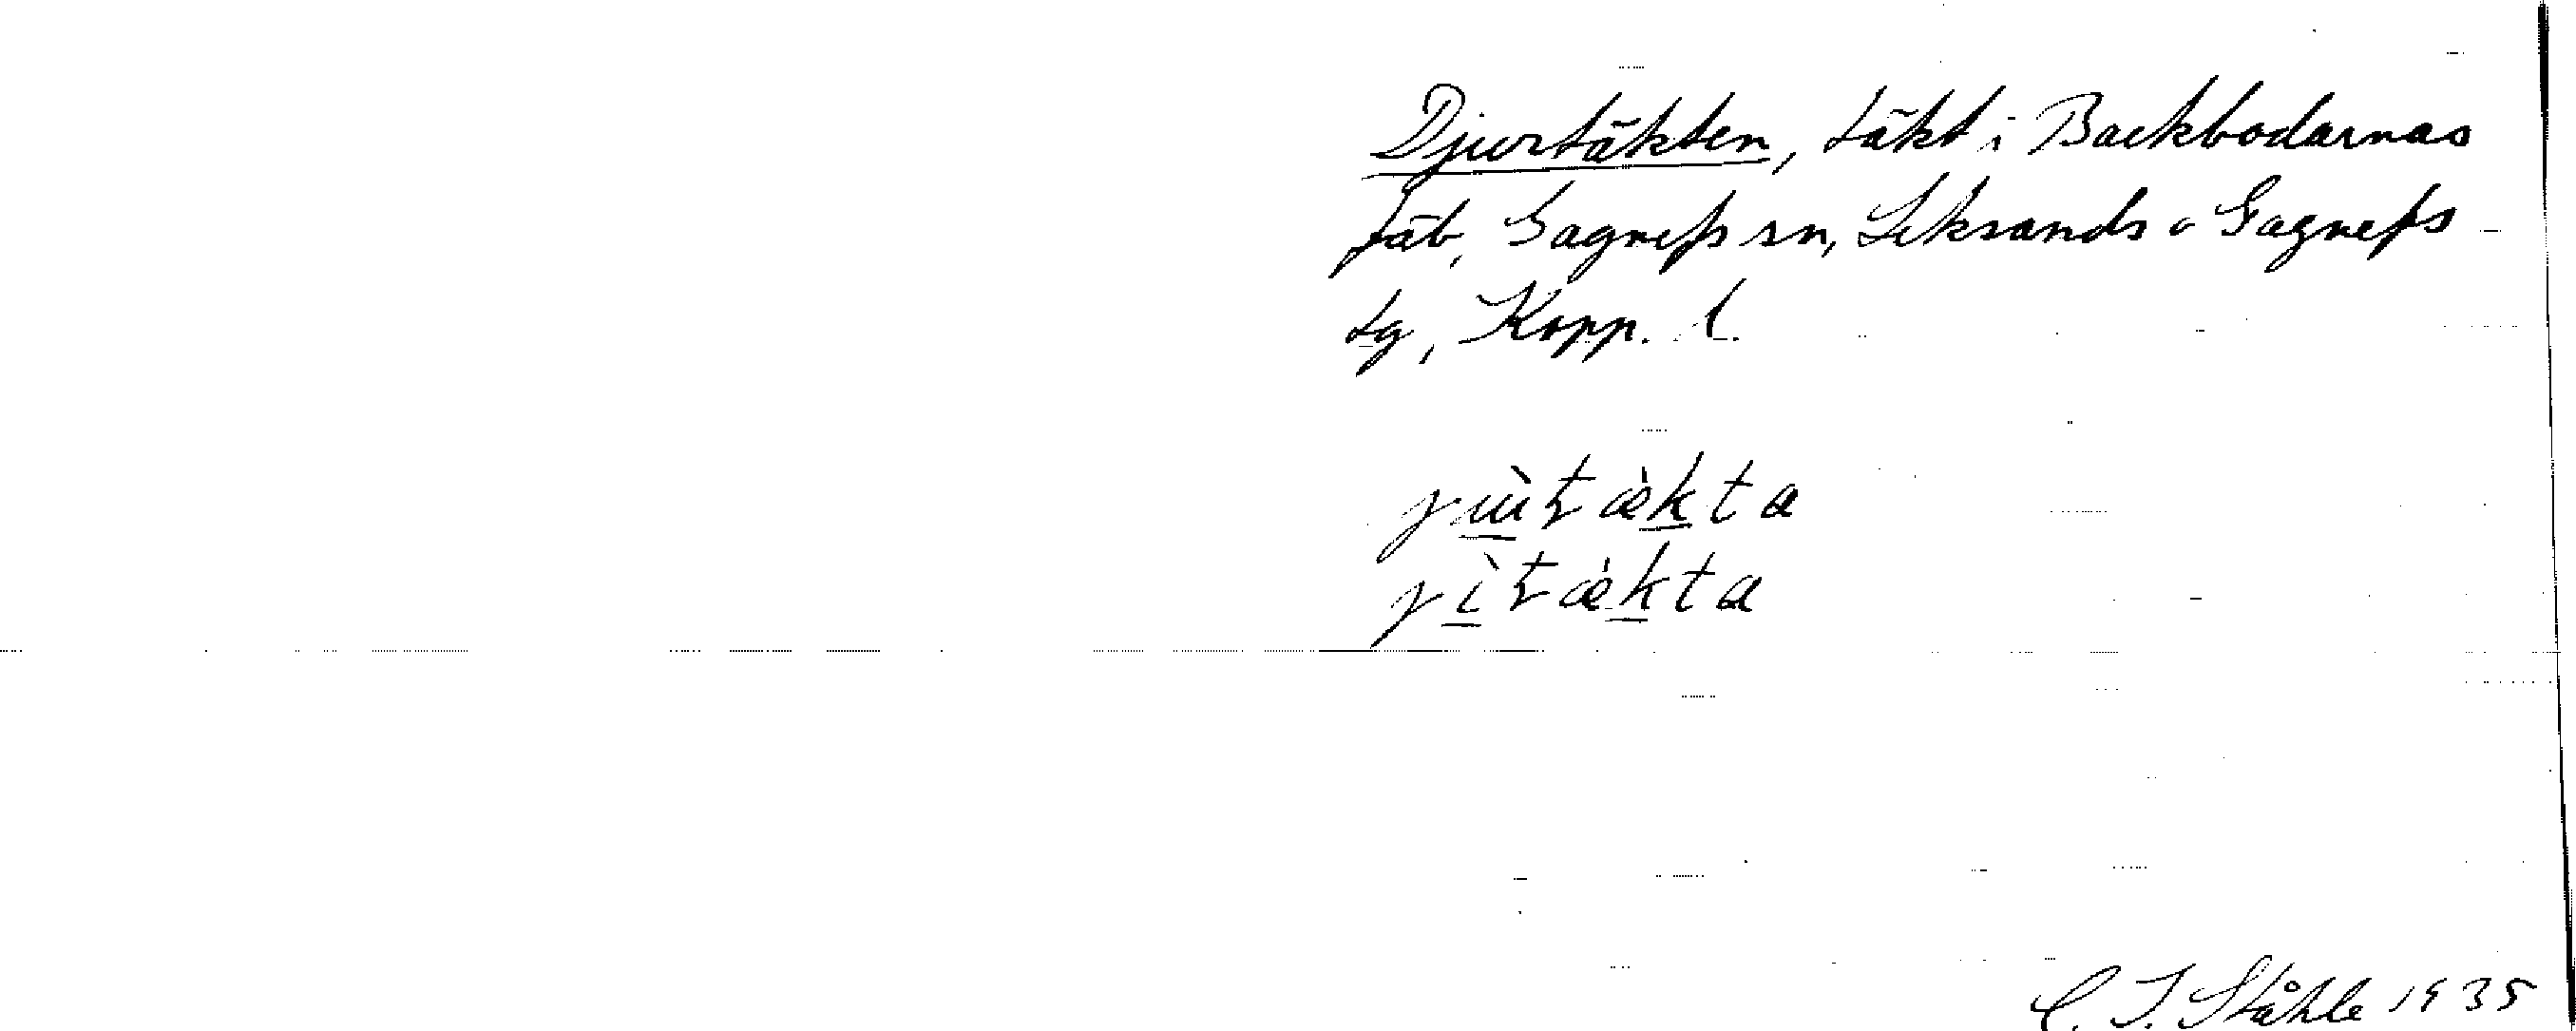 Djurtäkten, täkt i Backbodarnas
fäb, Gagnefs sn, Leksands o Gagnefs
tg, Kopp. l.
jɯ̀tæ̀kta
jìtæ̀kta
C. I. Ståhle 1935